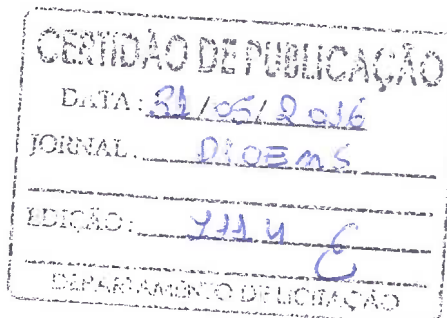 CERTIDÃO DE PUBLICAÇÃO
DATA: 31/05/2016
JORNAL: DIOEMS
EDIÇÃO: 1114
DEPARTAMENTO DE LICITAÇÃO